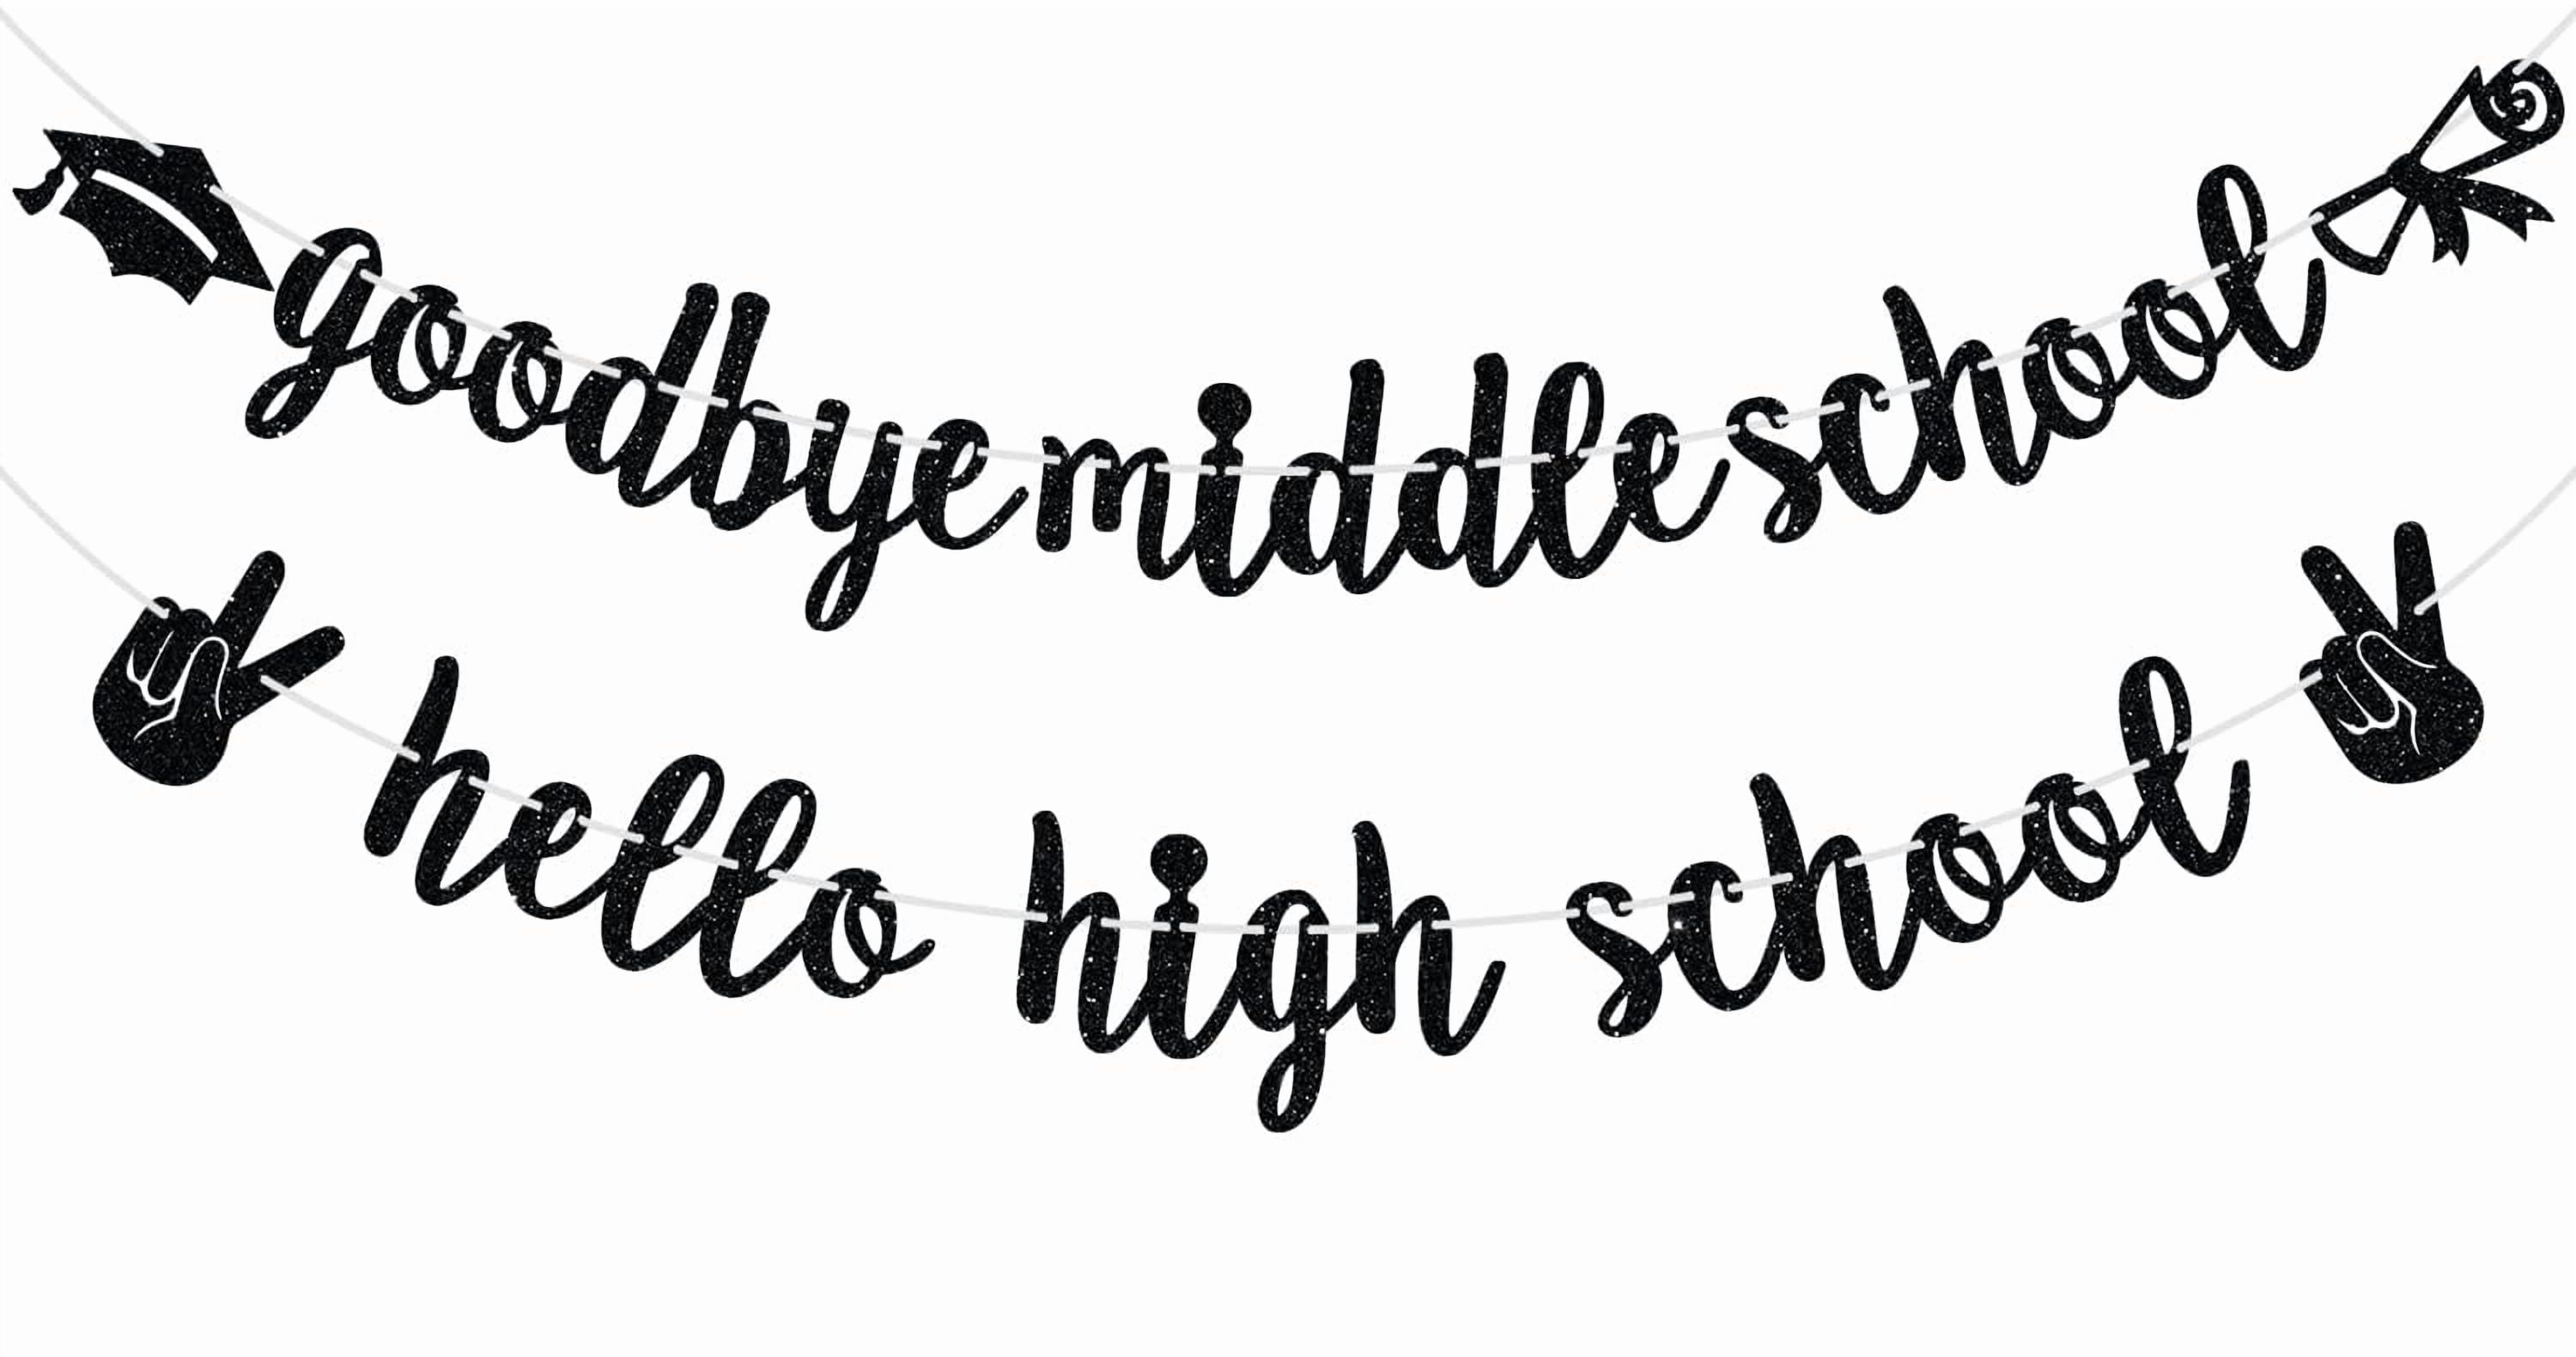 goodbye middle school
hello high school